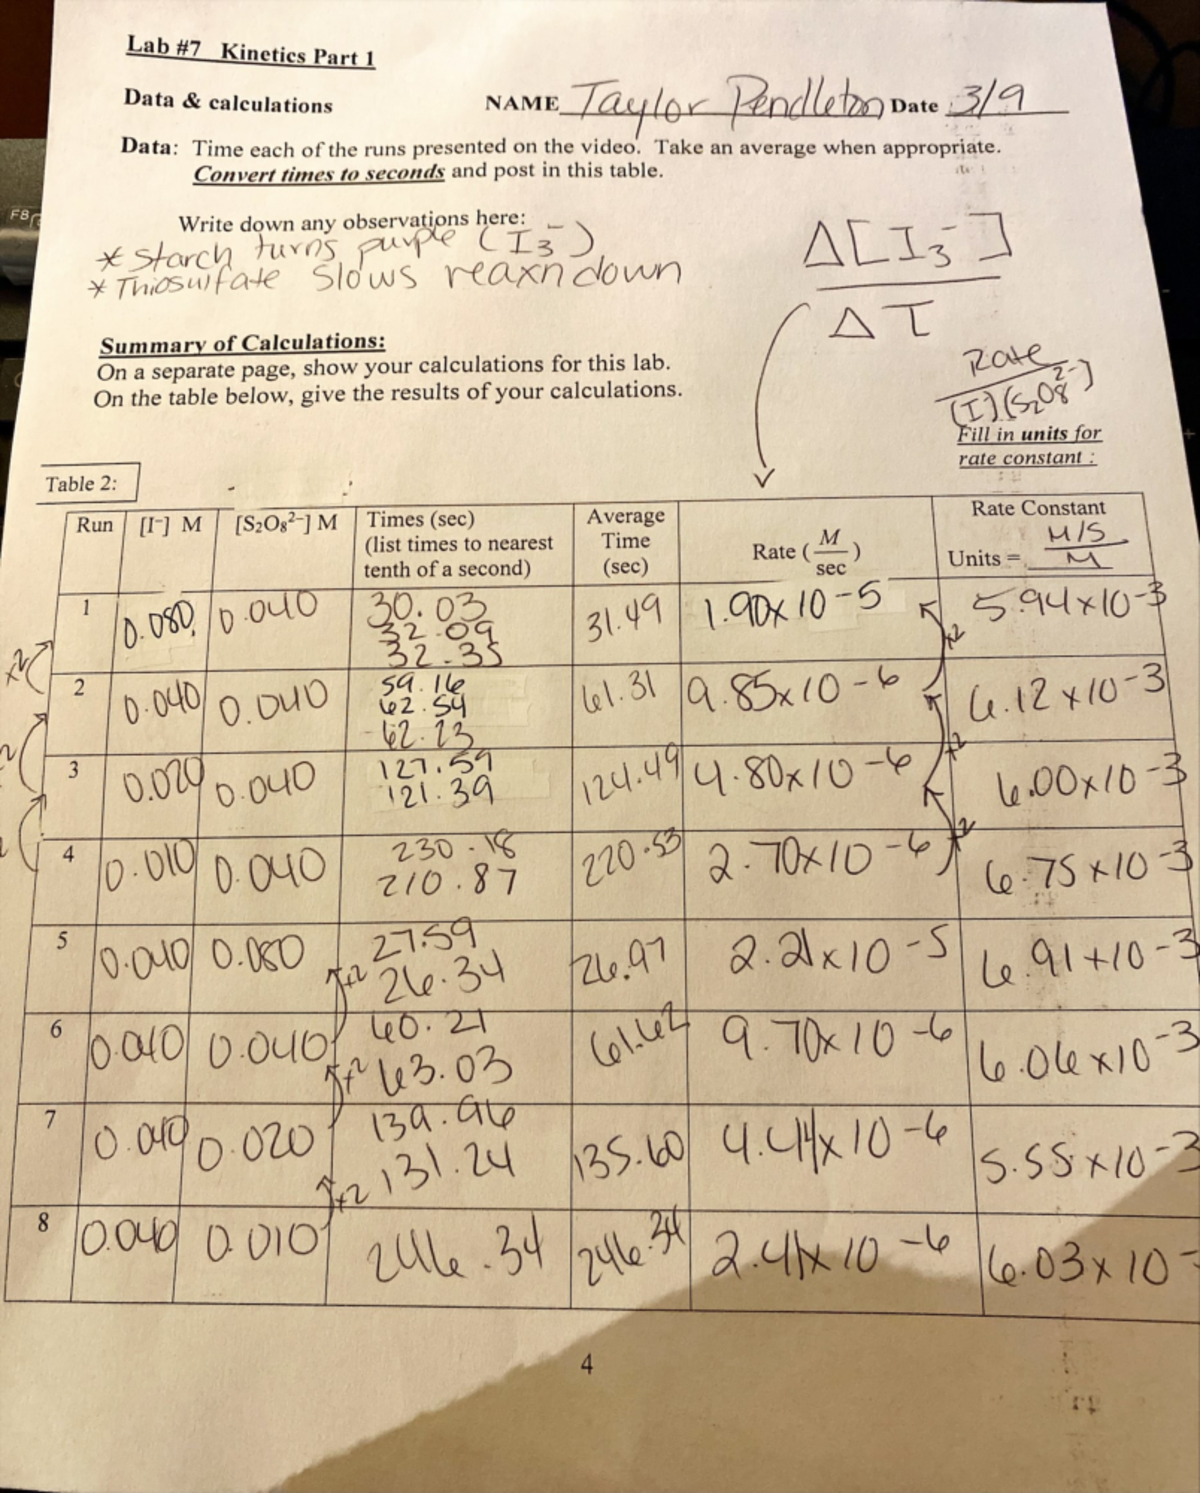 Lab #7 Kinetics Part 1
Data & calculations NAME Taylor Pendleton Date 3/9
Data: Time each of the runs presented on the video. Take an average when appropriate.
Convert times to seconds and post in this table.
Write down any observations here:
* Starch turns purple (I3⁻)
* Thiosulfate slows reaxn down
Δ[I3⁻]
ΔT
Summary of Calculations:
On a separate page, show your calculations for this lab.
On the table below, give the results of your calculations.
Rate
(I)(S2O8²⁻)
Fill in units for
rate constant :
Table 2:
Run [I⁻] M [S2O8²⁻] M Times (sec) (list times to nearest tenth of a second) Average Time (sec) Rate (M/sec) Rate Constant Units = M/S / M
1 0.080 0.040 30.03 32.09 32.35 31.49 1.90x10-5 5.94x10-3
x2 x2
2 0.040 0.040 59.16 62.54 62.23 61.31 9.85x10-6 6.12x10-3
2 x2
3 0.020 0.040 127.59 121.39 124.49 4.80x10-6 6.00x10-3
2 x2
4 0.010 0.040 230.18 210.87 220.53 2.70x10-6 6.75x10-3
5 0.040 0.080 27.59 26.34 26.97 2.21x10-5 6.91+10-3
x2
6 0.040 0.040 60.21 63.03 61.62 9.70x10-6 6.06x10-3
x2
7 0.040 0.020 139.96 131.24 135.60 4.41x10-6 5.55x10-3
x2
8 0.040 0.010 246.34 246.34 2.41x10-6 6.03x10-
4
F8